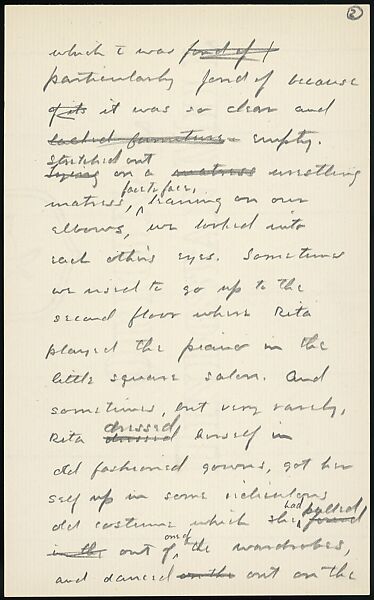 2
which I was fond of
particularly fond of because
of its it was so clear and
lacked furniture empty.
stretched out
lying on a mattress wrestling
face to face,
matress, leaning on our
elbows, we looked into
each other's eyes. Sometimes
we used to go up to the
second floor where Rita
played the piano in the
little square salon. And
sometimes, but very rarely,
dressed
Rita dressed herself in
old fashioned gowns, got her
self up in some ridiculous
had pulled
old costume which she found
one of
in the out of the wardrobes,
and danced on the out on the